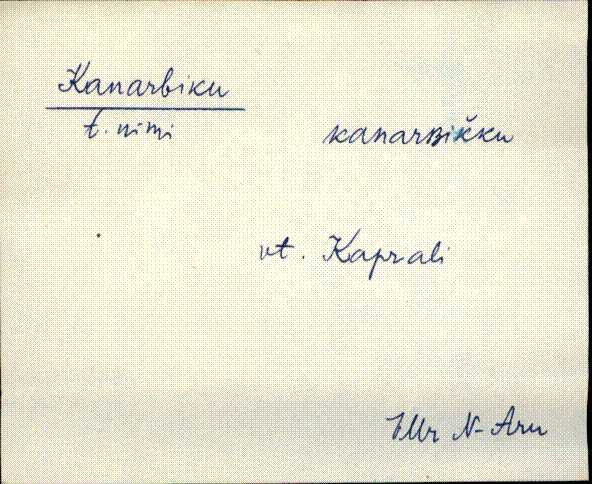 Kanarbiku
t. nimi
kanarʙik̆ku
vt. Kaprali
VMr N-Aru